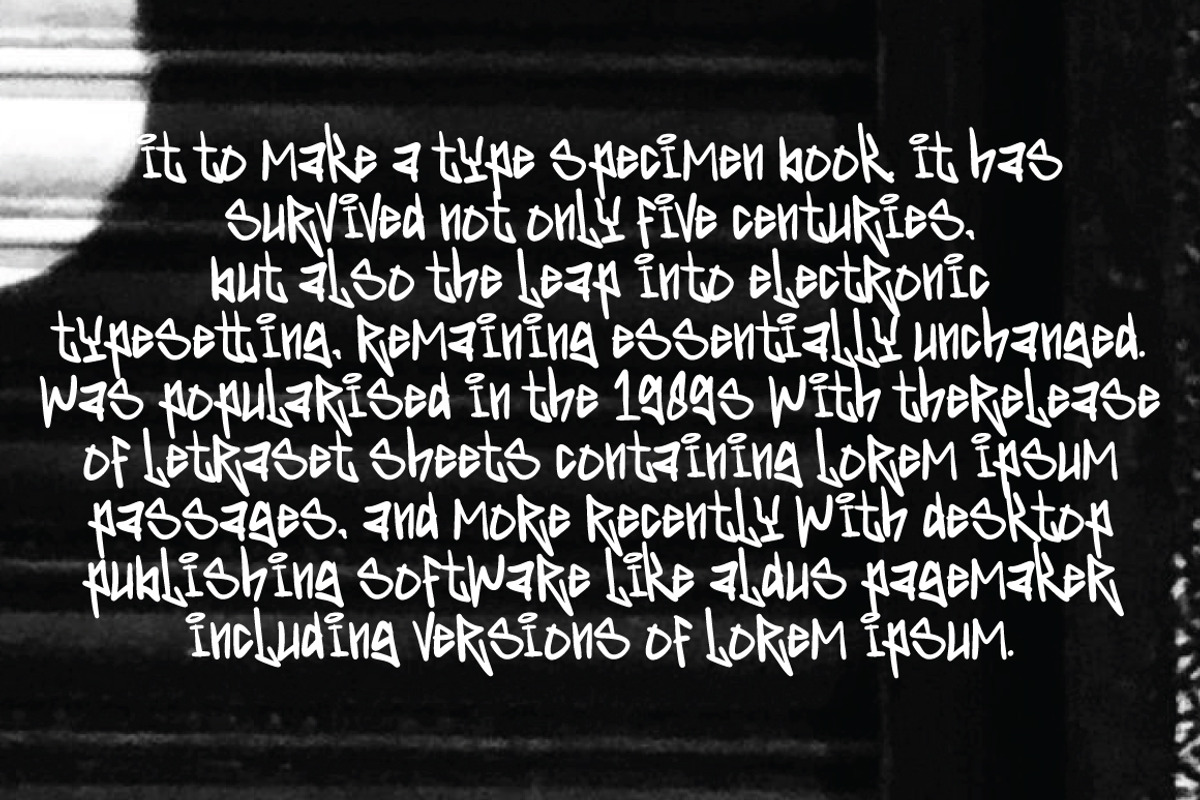 it to make a type specimen book. it has
survived not only five centuries,
but also the leap into electronic
typesetting, remaining essentially unchanged.
was popularised in the 1989s with therelease
of letraset sheets containing lorem ipsum
passages, and more recently with desktop
publishing software like aldus pagemaker
including versions of lorem ipsum.